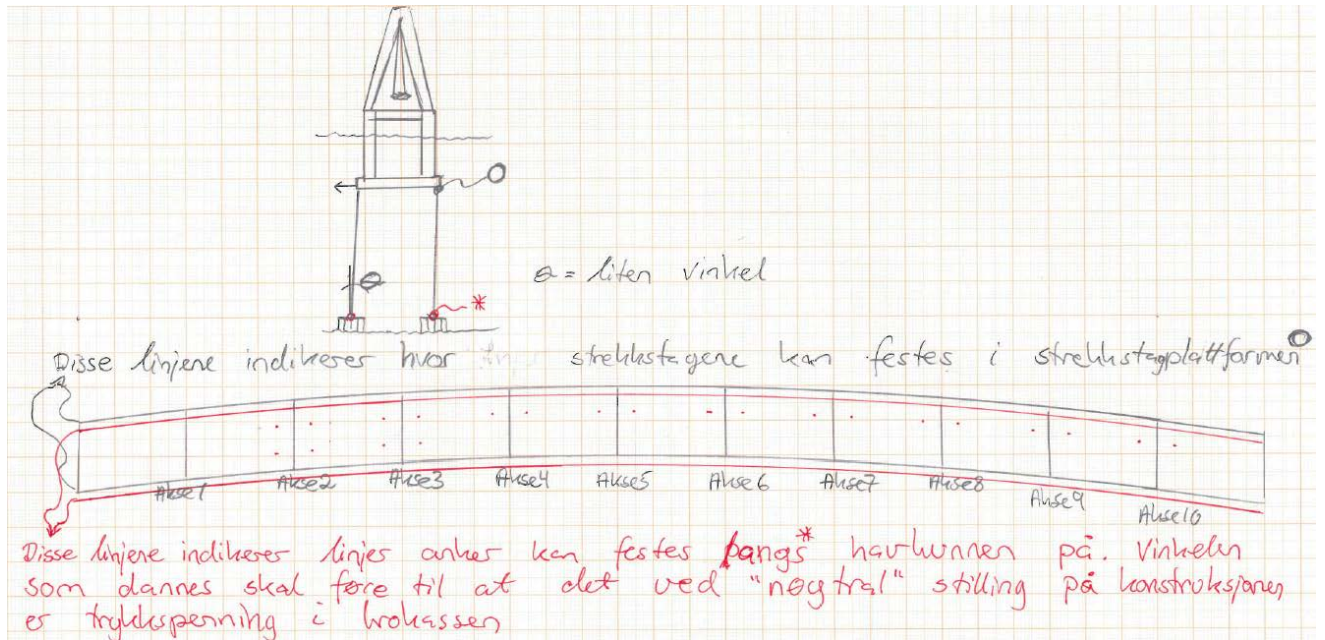 θ = liten vinkel
*
Disse linjene indikerer hvor strekkstagene kan festes i strekkstagplattformen
Akse1 Akse2 Akse3 Akse4 Akse5 Akse6 Akse7 Akse8 Akse9 Akse10
Disse linjene indikerer linjer anker kan festes langs* havbunnen på. Vinkelen
som dannes skal føre til at det ved "nøytral" stilling på konstruksjonen
er trykkspenning i brokassen